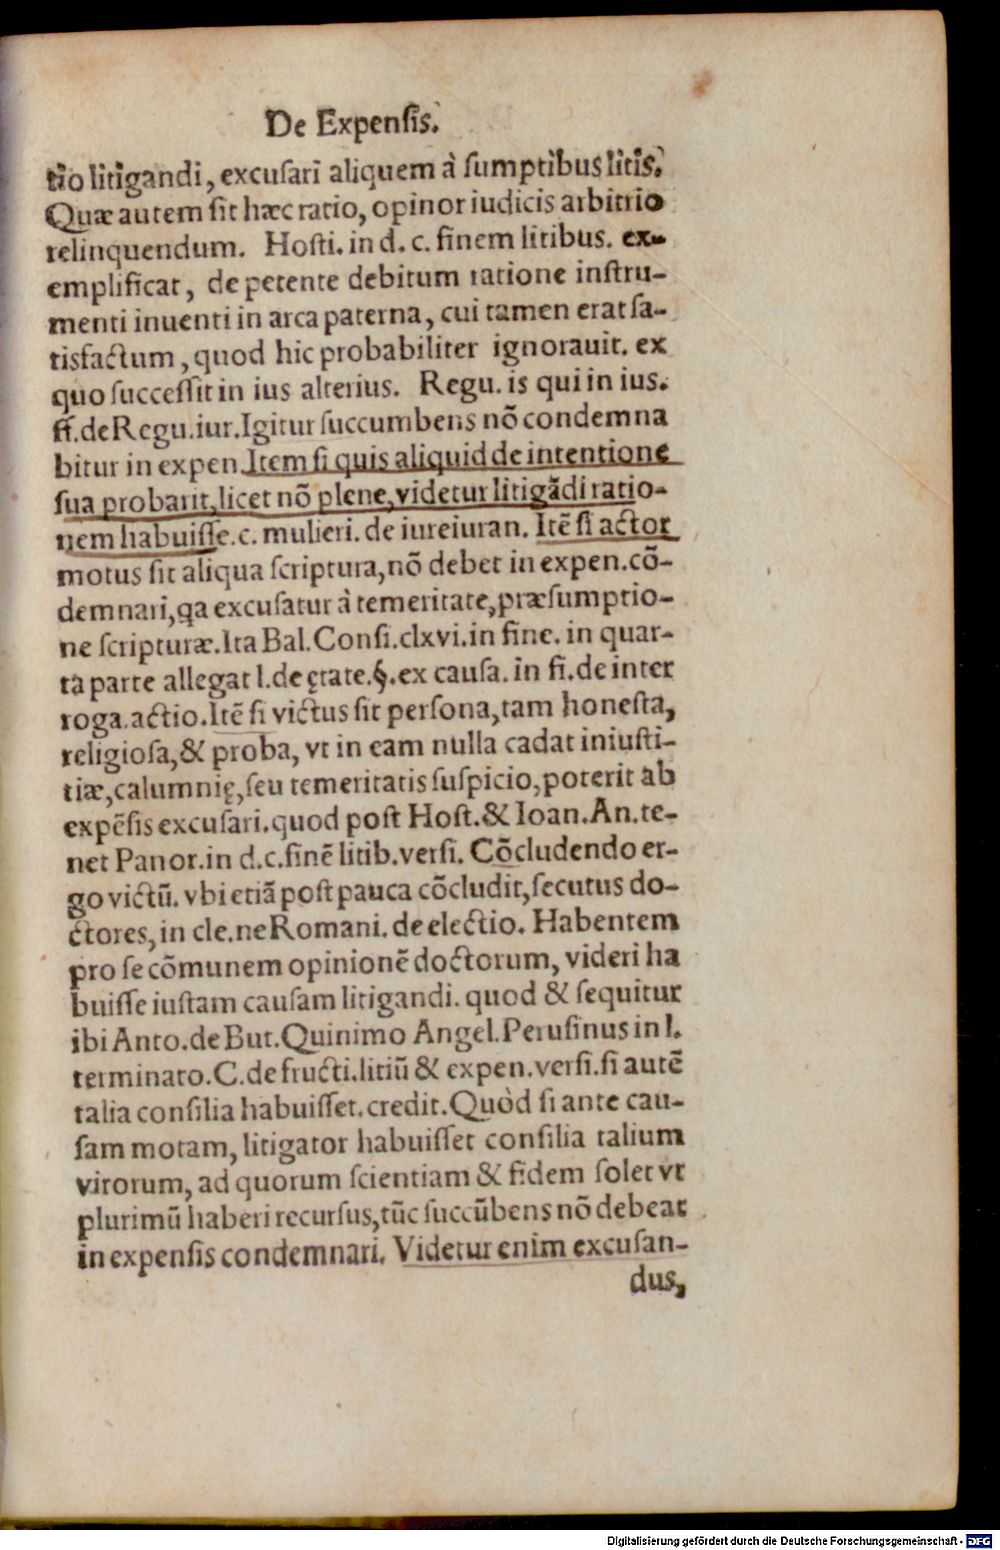 De Expenſis.
tio litigandi, excuſari aliquem à ſumptibus litis.
Quæ autem ſit hæc ratio, opinor iudicis arbitrio
relinquendum. Hoſti. in d. c. finem litibus. ex-
emplificat, de petente debitum ratione inſtru-
menti inuenti in arca paterna, cui tamen erat ſa-
tisfactum, quod hic probabiliter ignorauit. ex
quo ſucceſſit in ius alterius. Regu. is qui in ius.
ff. de Regu. iur. Igitur ſuccumbens nõ condemna
bitur in expen. Item ſi quis aliquid de intentione
ſua probarit, licet nõ plene, videtur litigãdi ratio-
nem habuiſſe. c. mulieri. de iureiuran. Itẽ ſi actor
motus ſit aliqua ſcriptura, nõ debet in expen. cõ-
demnari, qa excuſatur à temeritate, præſumptio-
ne ſcripturæ. Ita Bal. Conſi. clxvi. in fine. in quar-
ta parte allegat l. de ętate. §. ex cauſa. in fi. de inter
roga. actio. Itẽ ſi victus ſit perſona, tam honeſta,
religioſa, & proba, vt in eam nulla cadat iniuſti-
tiæ, calumnię, ſeu temeritatis ſuſpicio, poterit ab
expẽſis excuſari. quod poſt Hoſt. & Ioan. An. te-
net Panor. in d. c. finẽ litib. verſi. Cõcludendo er-
go victũ. vbi etiã poſt pauca cõcludit, ſecutus do-
ctores, in cle. ne Romani. de electio. Habentem
pro ſe cõmunem opinionẽ doctorum, videri ha
buiſſe iuſtam cauſam litigandi. quod & ſequitur
ibi Anto. de But. Quinimo Angel. Peruſinus in l.
terminato. C. de fructi. litiũ & expen. verſi. ſi autẽ
talia conſilia habuiſſet. credit. Quòd ſi ante cau-
ſam motam, litigator habuiſſet conſilia talium
virorum, ad quorum ſcientiam & fidem ſolet vt
plurimũ haberi recurſus, tũc ſuccũbens nõ debeat
in expenſis condemnari. Videtur enim excuſan-
dus,
Digitalisierung gefördert durch die Deutsche Forschungsgemeinschaft - DFG